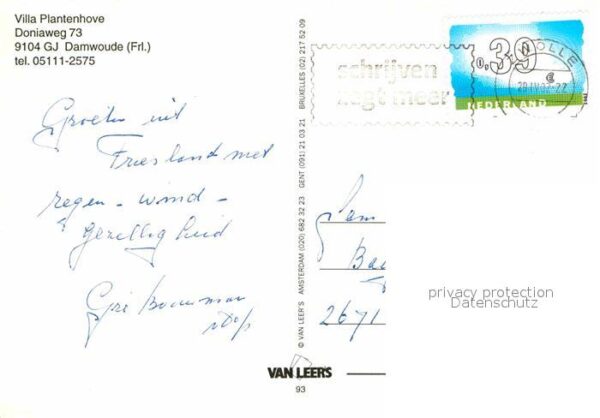 Villa Plantenhove
Doniaweg 73
9104 GJ Damwoude (Frl.)
tel. 05111-2575
Groeten uit
Friesland met
regen - wind -
gezelligheid
© VAN LEER'S AMSTERDAM (020) 682 32 23 GENT (091) 21 03 21 BRUXELLES (02) 217 52 09
schrijven
zegt meer
0,39
NEDERLAND
ZWOLLE
Fam
2671
privacy protection
Datenschutz
VAN LEER'S
93